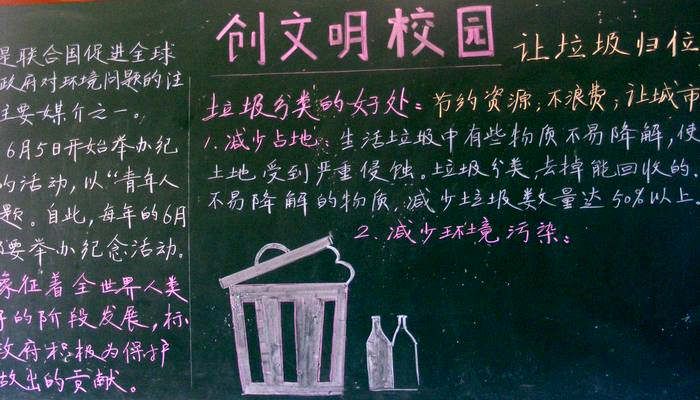 创文明校园
让垃圾归位
是联合国促进全球
政府对环境问题的注
主要媒介之一。
6月5日开始举办纪
的活动,以“青年人
题。自此,每年的6月
都要举办纪念活动。
象征着全世界人类
好的阶段发展,标
政府积极为保护
做出的贡献。
垃圾分类的好处:节约资源,不浪费,让城市
1.减少占地:生活垃圾中有些物质不易降解,使
土地受到严重侵蚀。垃圾分类,去掉能回收的、
不易降解的物质,减少垃圾数量达50%以上。
2.减少环境污染: